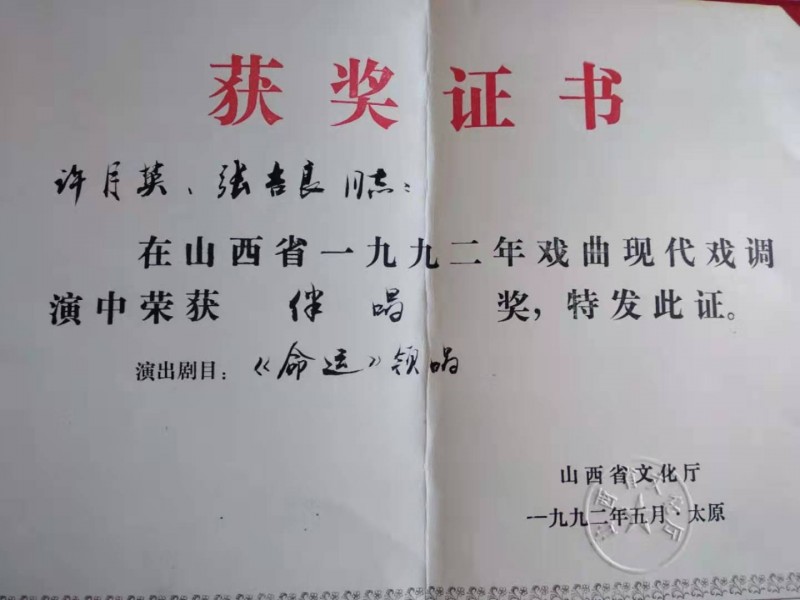 获奖证书
许月英、张吉良同志：
在山西省一九九二年戏曲现代戏调
演中荣获 伴唱 奖，特发此证。
演出剧目：《命运》领唱
山西省文化厅
一九九二年五月·太原